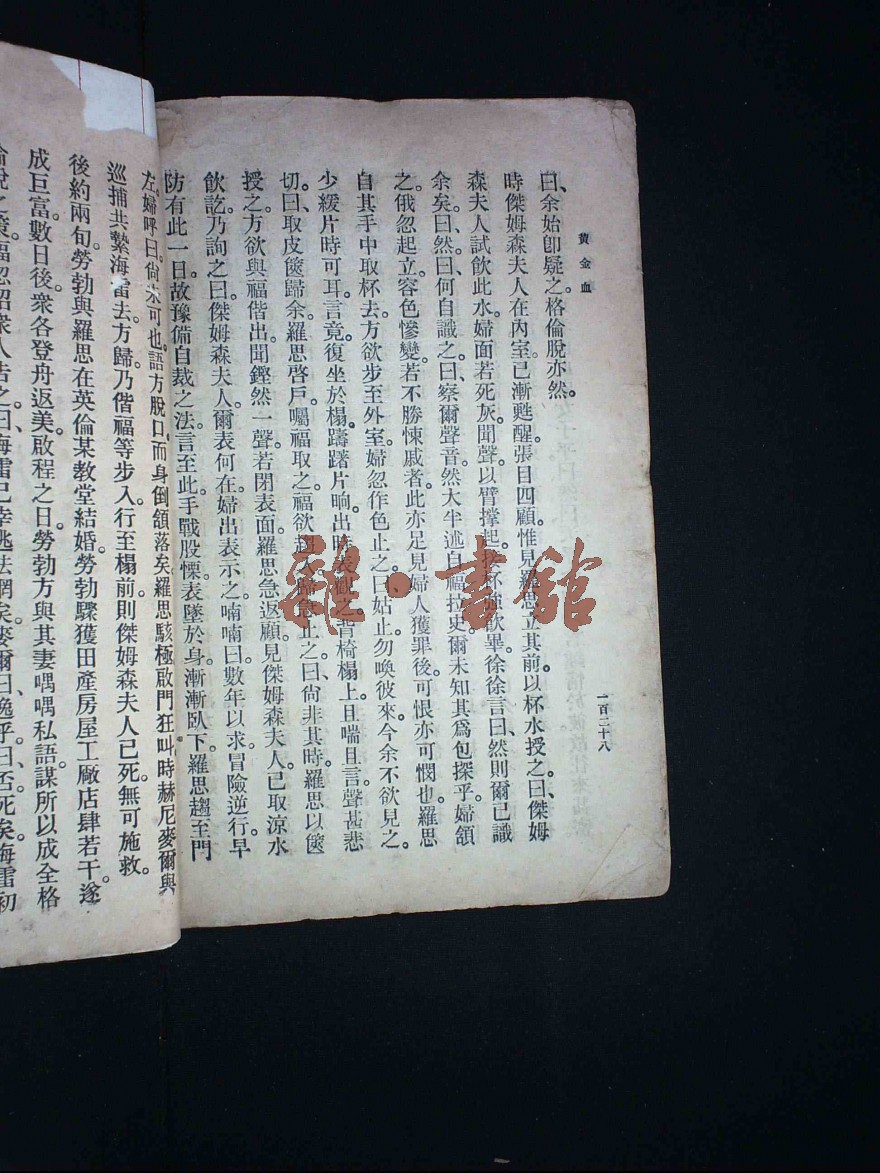 黄金血
一百二十八
曰、余始卽疑之。格倫脫亦然。
時傑姆森夫人在內室已漸甦醒張目四顧惟見羅思立其前以杯水授之曰、傑姆
森夫人試飲此水。婦面若死灰聞聲以臂撐起接杯強飲畢徐徐言曰、然則爾已識
余矣。曰、然。曰、何自識之。曰、察爾聲音然大半述自福拉史爾未知其爲包探乎婦頷
之。俄忽起立容色慘變若不勝悚戚者此亦足見婦人獲罪後可恨亦可憫也羅思
自其手中取杯去方欲步至外室婦忽作色止之曰、姑止勿喚彼來今余不欲見之。
少緩片時可耳。言竟復坐於榻。躊躇片晌出時表觀之背椅榻上且喘且言聲甚悲
切。曰、取皮篋歸余。羅思啓戶。囑福取之福欲入婦急止之曰、尙非其時。羅思以篋
授之方欲與福偕出聞鏗然一聲若閉表面羅思急返顧見傑姆森夫人已取涼水
飲訖乃詢之曰傑姆森夫人爾表何在婦出表示之喃喃曰數年以求冒險逆行早
防有此一日故豫備自裁之法。言至此手戰股慄表墜於身漸漸臥下。羅思趨至門
左。婦呼曰。尙未可也。語方脫口。而身倒頷落矣羅思駭極啟門狂叫時赫尼麥爾與
巡捕共縶海雷去方歸乃偕福等步入行至榻前則傑姆森夫人已死無可施救。
後約兩旬。勞勃與羅思在英倫某教堂結婚勞勃驟獲田產房屋工廠店肆若干。遂
成巨富數日後衆各登舟返美啟程之日勞勃方與其妻喁喁私語謀所以成全格
倫脫之策。福忽招衆人告之曰海雷已幸逃法網矣。麥爾曰。逸乎。曰。否。死矣海雷初